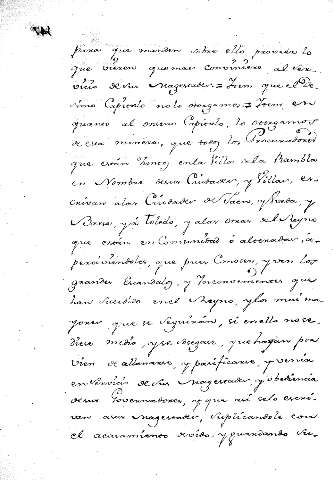 para que manden sobre ello proveer lo
que vieren que mas conviniere al ser-
vicio de sus Magestades = Item, que el De-
simo Capitulo no lo otorgamos = Item en
quanto al onceno Capitulo, lo otorgamos
de esta manera, que todos los Procuradores
que están Juntos en la Villa de la Rambla
en Nombre de sus Ciudades, y Villas, es-
crivan a las Ciudades de Jaen, y Ubeda, y
Baeza, y à Toledo, y a las otras del Reyno
que están en Comunidad ó alteradas,
perciviendoles, que pues Conocen, y ven los
grandes Escandalos, y Inconvenientes que
han Sucedido en el Reyno, y los mui ma-
yores, que se Seguirán, si en ello no se
diese medio, y se Sosegase, que hayan por
vien de allanarse, y pacificarse, y venir
en Servicio de Sus Magestades, y obediencia
de sus Governadores, y que asi selo escri-
van a sus Magestades, Suplicandole con
el acatamiento devido, y guardando Su-